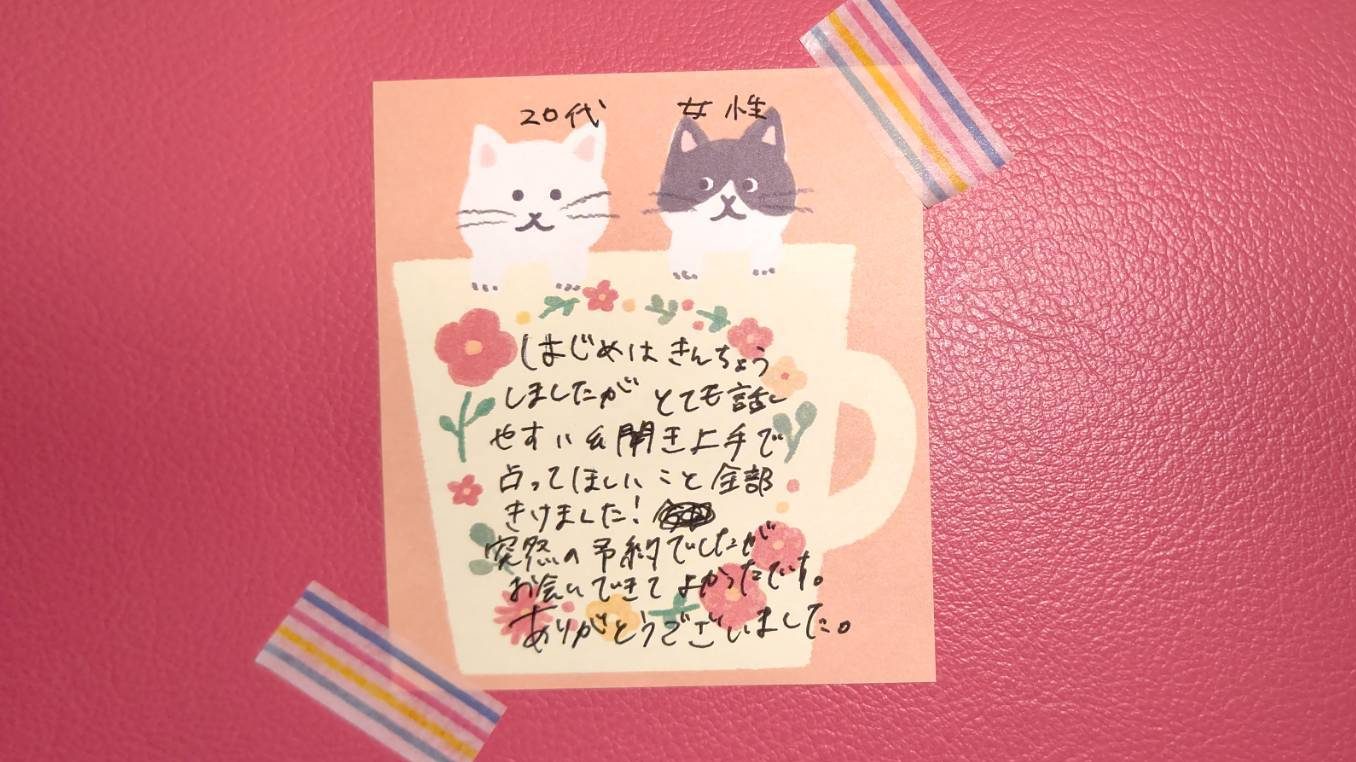 20代 女性
はじめは きんちょう
しましたが とても話し
やすい 聞き上手で
占ってほしいこと全部
きけました!
突然の予約でしたが
お会いできてよかったです。
ありがとうございました。